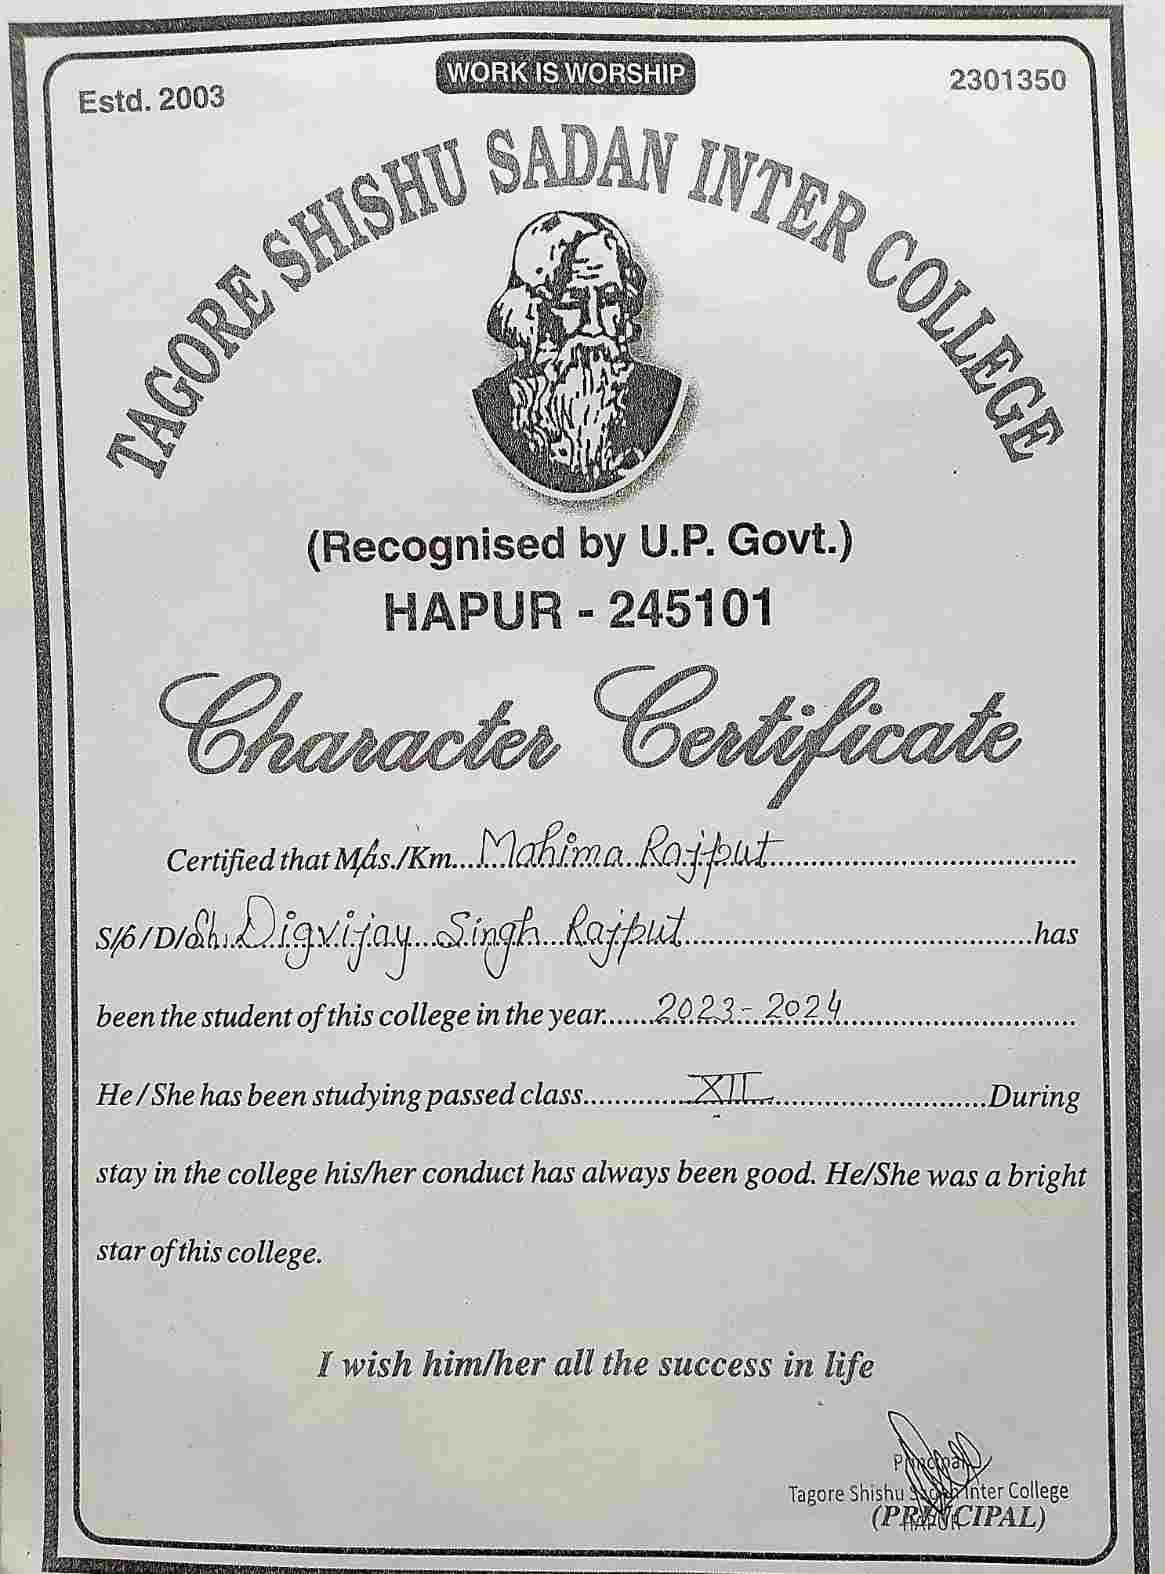 WORK IS WORSHIP
Estd. 2003
2301350
TAGORE SHISHU SADAN INTER COLLEGE
(Recognised by U.P. Govt.)
HAPUR - 245101
Character Certificate
Certified that M/s./Km. Mahima Rajput
S/o / D/o Sh. Digvijay Singh Rajput has
been the student of this college in the year 2023-2024
He / She has been studying passed class XII During
stay in the college his/her conduct has always been good. He/She was a bright
star of this college.
I wish him/her all the success in life
Principal
Tagore Shishu Sadan Inter College
HAPUR
(PRINCIPAL)